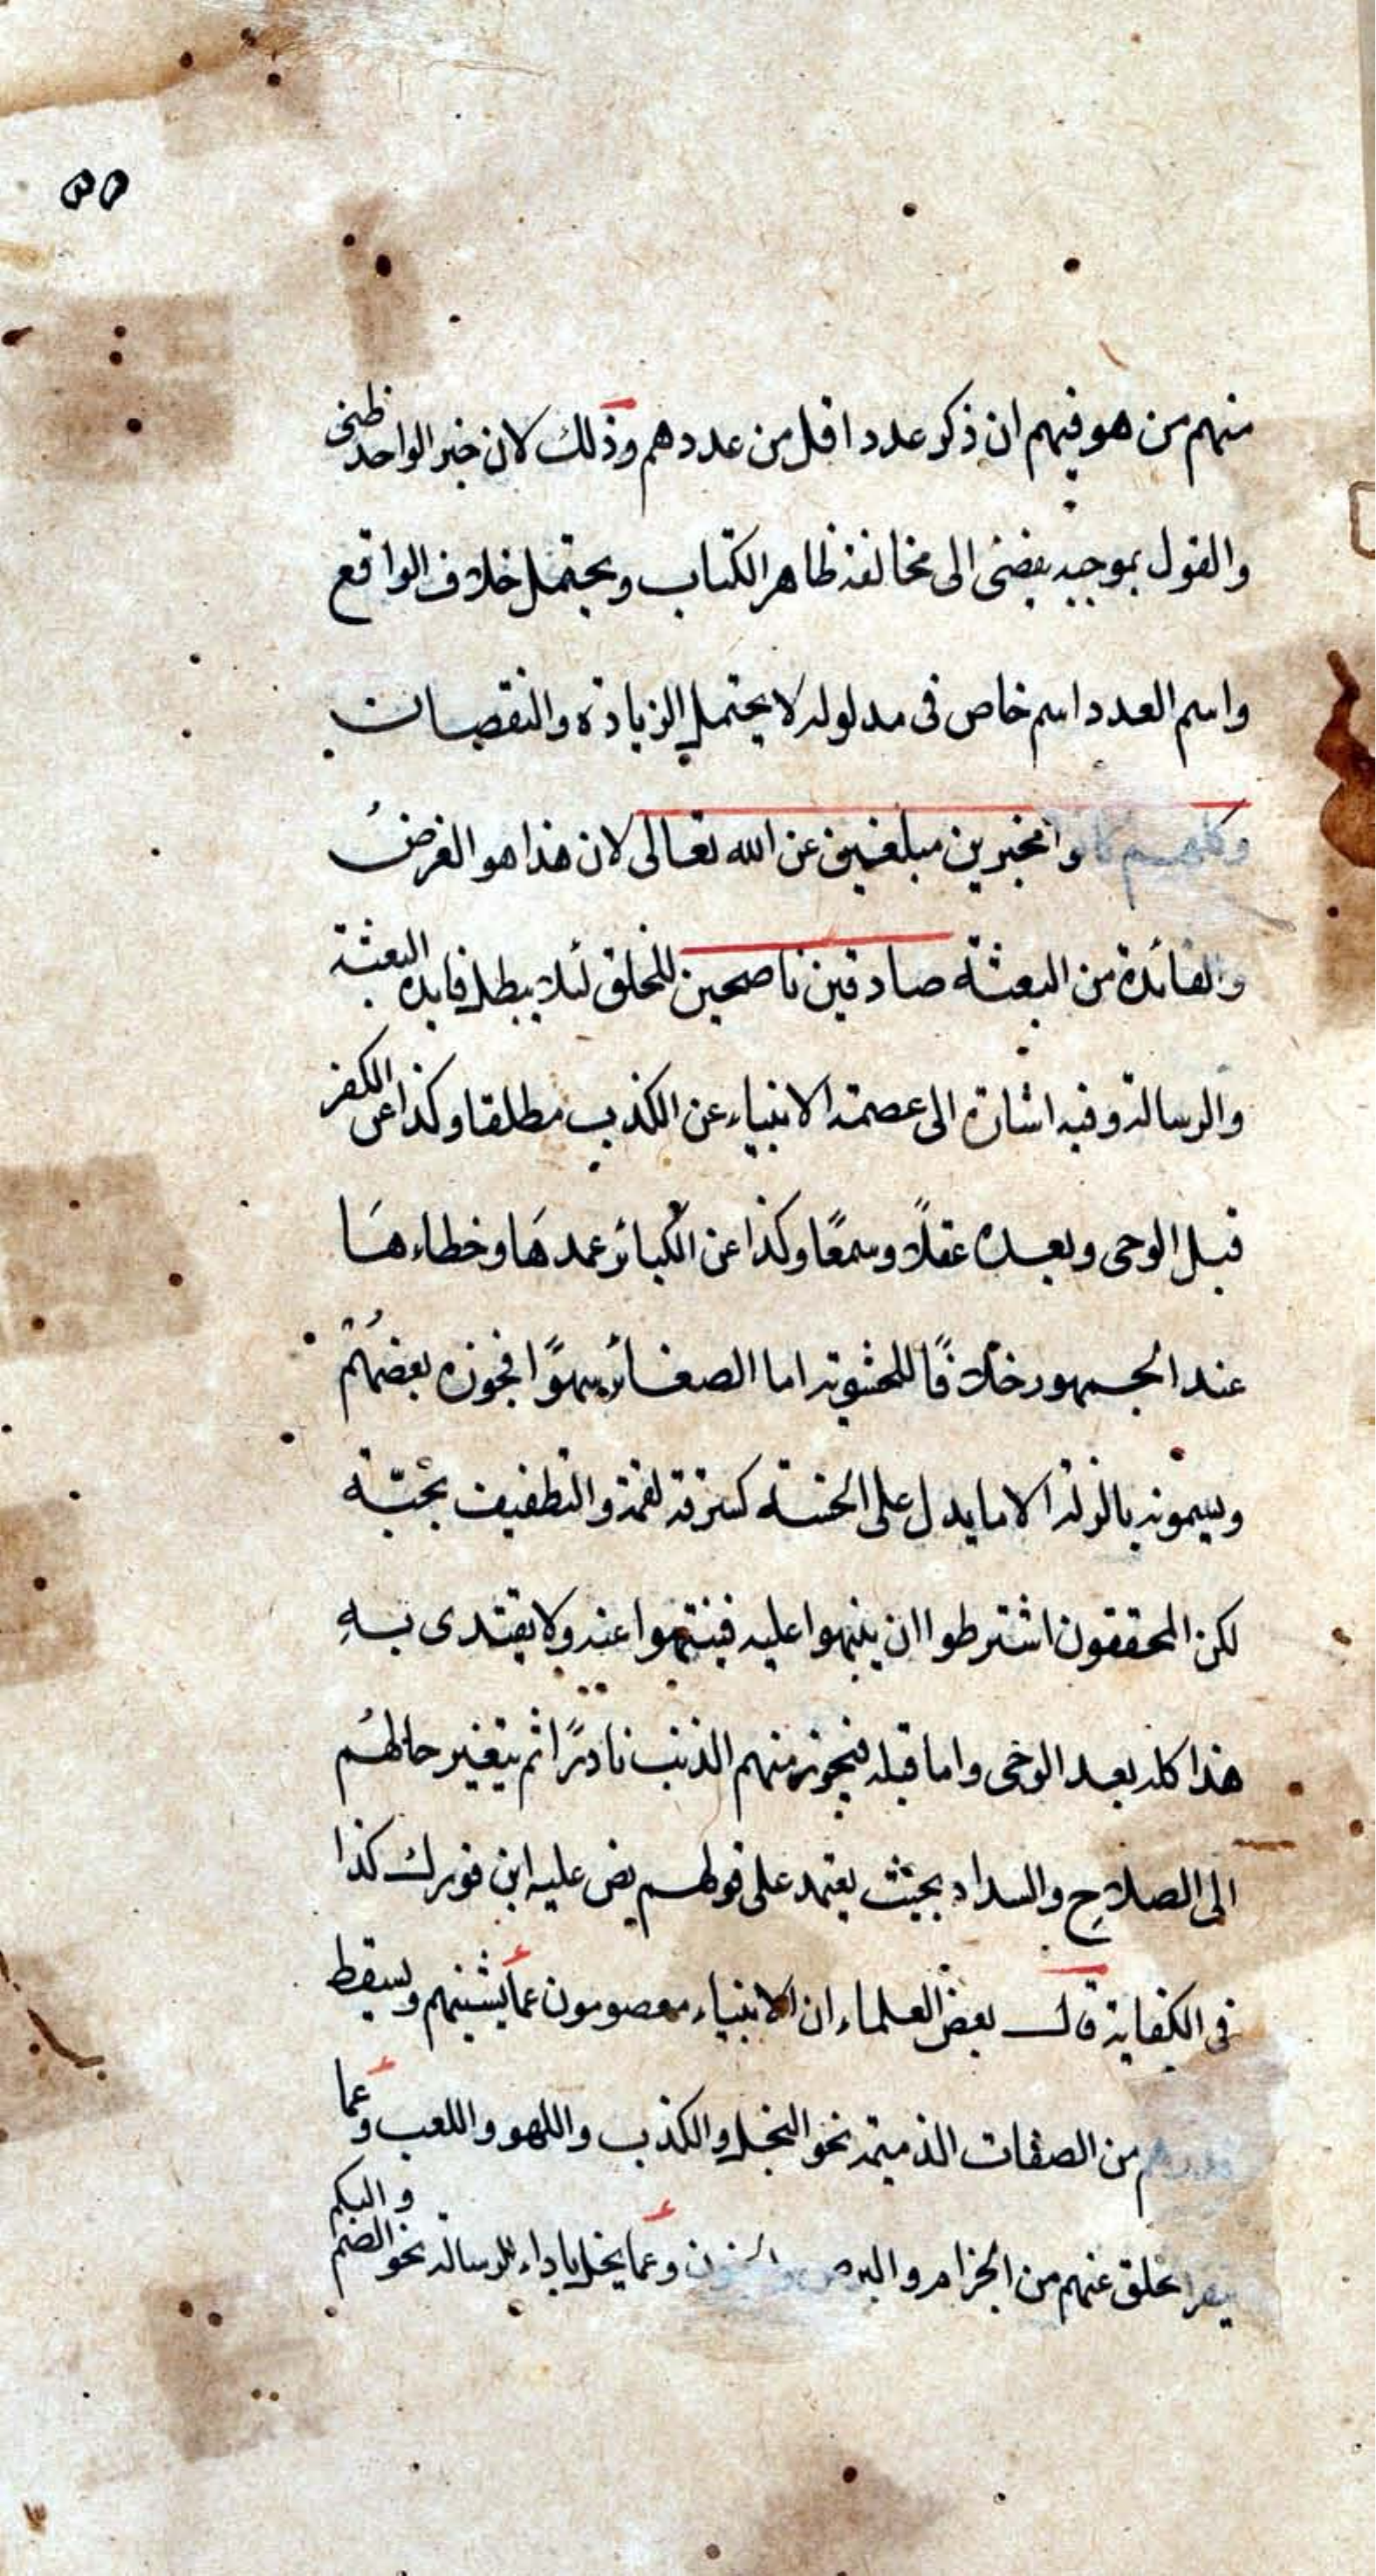 ٥٥
منهم من هو فيهم ان ذكر عدد اقل من عددهم وذلك لان خبر الواحد ظنى
والقول بموجبه يفضى الى مخالفة ظاهر الكتاب ويحتمل خلاف الواقع
واسم العدد اسم خاص فى مدلوله لا يحتمل الزيادة والنقصان
وكلهم كانوا مخبرين مبلغين عن الله تعالى لان هذا هو الغرضُ
والفائدة من البعثة صادقين ناصحين للخلق لئلا يبطل فايدة البعثة
والرسالة وفيه اشارة الى عصمة الانبياء عن الكذب مطلقا وكذا عن الكفر
قبل الوحى وبعده عقلًا وسمعًا وكذا عن الكبائر عمدهَا وخطاءهَا
عند الجمهور خلافًا للحشوية اما الصغائر سهوًا فجوزه بعضهُم
ويسمونه بالزلة الا ما يدل على الخسة كسرقة لقمة والتطفيف بحبّة
لكن المحققون اشترطوا ان ينبهوا عليه فينتهوا عنه ولا يقتدى بهِ
هذا كله بعد الوحى واما قبله فيجوز منهم الذنب نادرًا ثم يتغير حالهُم
الى الصلاحِ والسداد بحيث يعتمد على قولهم نص عليه ابن فورك كذا
فى الكفاية قال بعض العلماء ان الانبياء معصومون عما يشينهم ويسقط
من الصفات الذميمة نحو البخل والكذب واللهو واللعب وعما
ينفر الخلق عنهم من الجزام والبرص والجنون وعما يخل باداء الرسالة نحو الصم والبكم